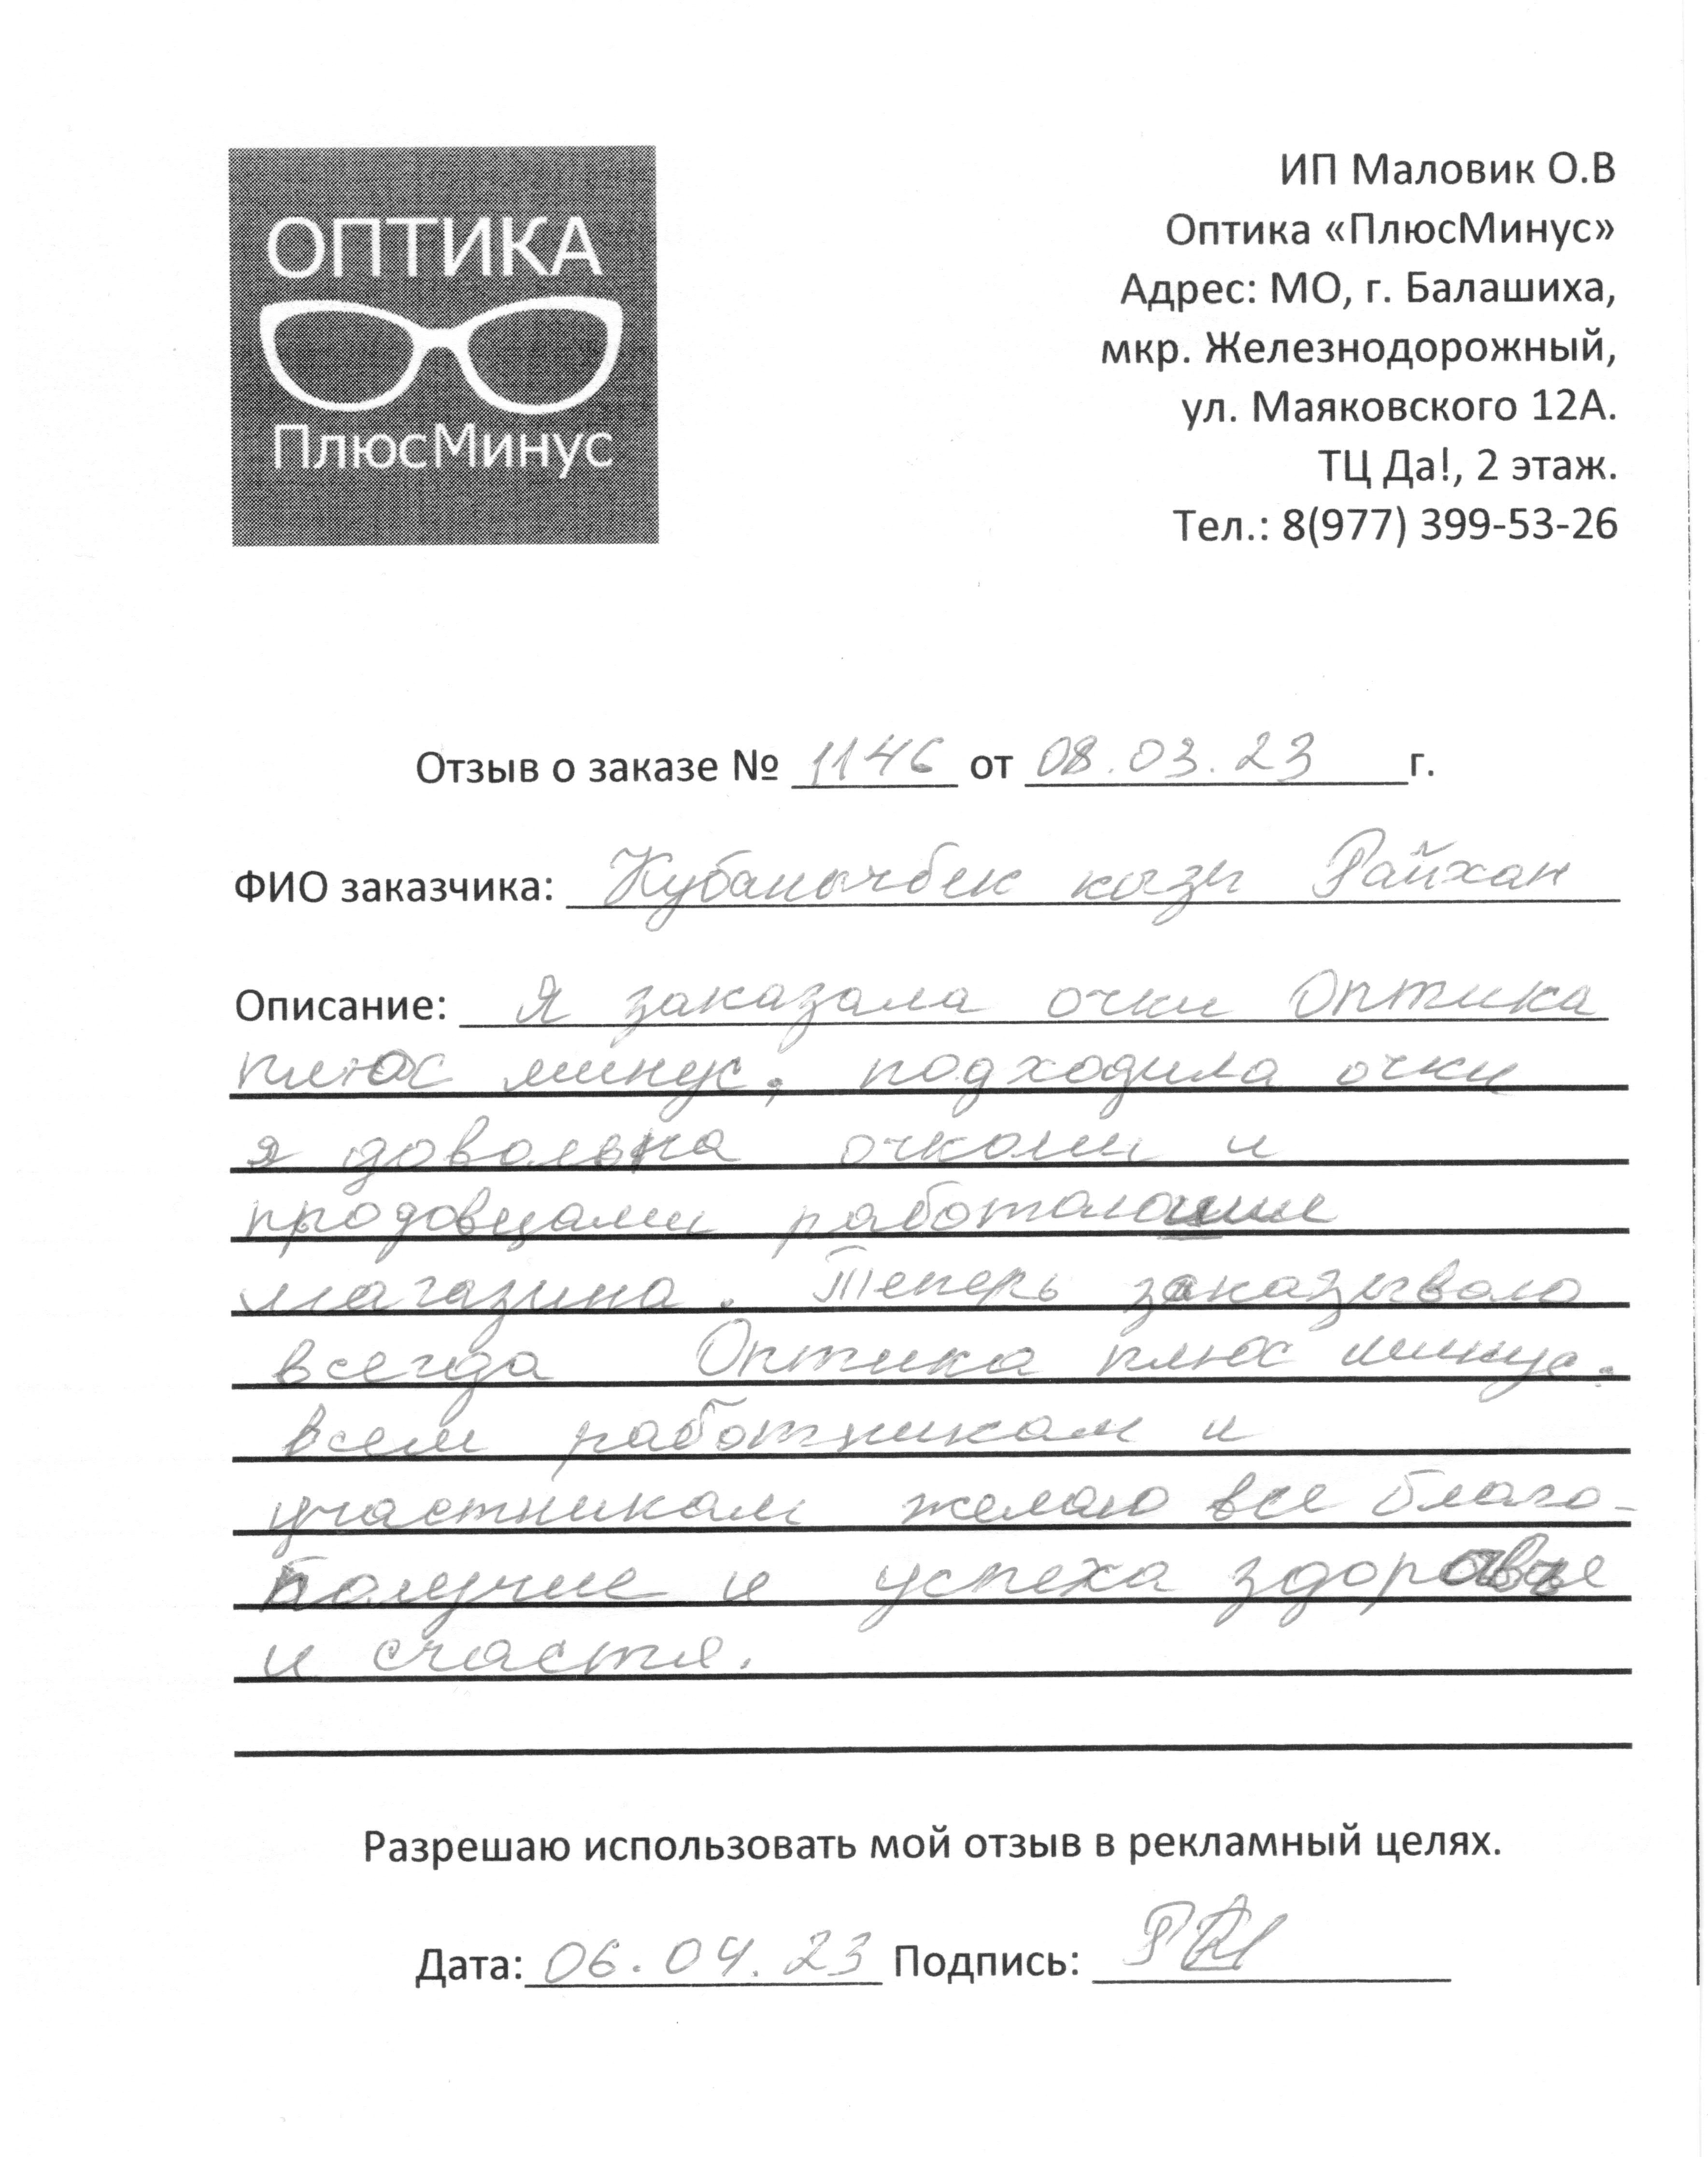 ОПТИКА
ПлюсМинус
ИП Маловик О.В
Оптика «ПлюсМинус»
Адрес: МО, г. Балашиха,
мкр. Железнодорожный,
ул. Маяковского 12А.
ТЦ Да!, 2 этаж.
Тел.: 8(977) 399-53-26
Отзыв о заказе № 1146 от 08.03.23 г.
ФИО заказчика: Кубанычбек кызы Райхан
Описание: Я заказала очки Оптика
плюс минус, подходила очки
я довольна очками и
продовцами
магазина. Теперь заказываю
всегда Оптика плюс минус.
всем работникам и
участникам желаю все благо-
получие и успеха здоровье
и счастя.
Разрешаю использовать мой отзыв в рекламный целях.
Дата: 06.04.23 Подпись: